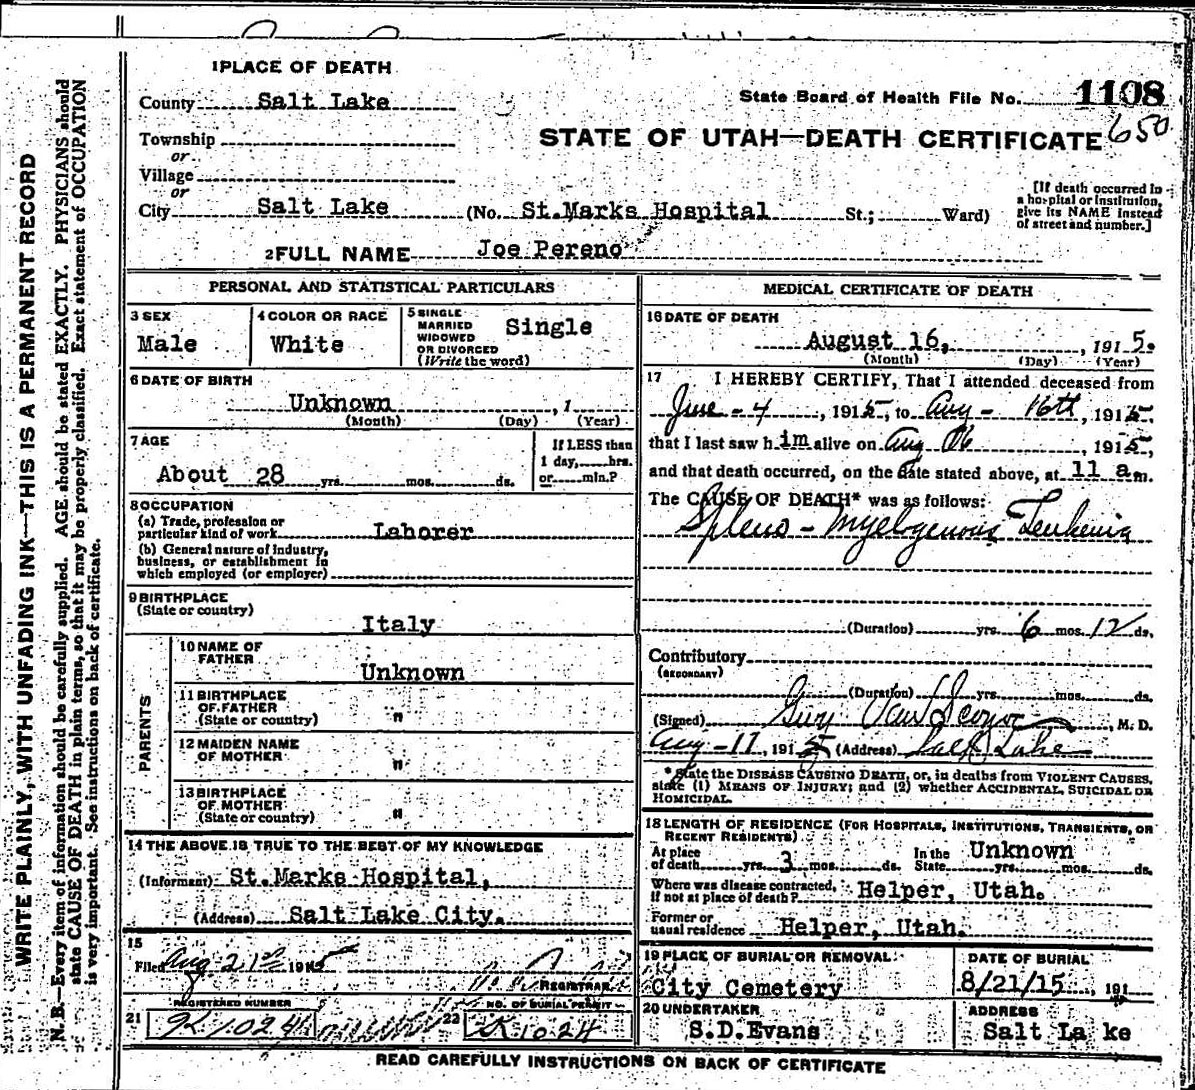 1 PLACE OF DEATH
County Salt Lake
State Board of Health File No. 1108
650
Township
or
Village
or
STATE OF UTAH—DEATH CERTIFICATE
City Salt Lake (No. St.Marks Hospital St.; Ward)
[If death occurred in a hospital or institution, give its NAME instead of street and number.]
2 FULL NAME Joe Pereno
PERSONAL AND STATISTICAL PARTICULARS
3 SEX Male
4 COLOR OR RACE White
5 SINGLE MARRIED WIDOWED OR DIVORCED (Write the word) Single
6 DATE OF BIRTH
Unknown , 1
(Month) (Day) (Year)
7 AGE
About 28 yrs. mos. ds.
If LESS than 1 day, hrs. or min.?
8 OCCUPATION
(a) Trade, profession or particular kind of work Laborer
(b) General nature of industry, business, or establishment in which employed (or employer)
9 BIRTHPLACE
(State or country)
Italy
PARENTS
10 NAME OF FATHER Unknown
11 BIRTHPLACE OF FATHER (State or country) "
12 MAIDEN NAME OF MOTHER "
13 BIRTHPLACE OF MOTHER (State or country) "
14 THE ABOVE IS TRUE TO THE BEST OF MY KNOWLEDGE
(Informant) St.Marks Hospital,
(Address) Salt Lake City.
15
Filed Aug 21st 1915
REGISTRAR
REGISTERED NUMBER
NO. OF BURIAL PERMIT
21 1024 22 1024
MEDICAL CERTIFICATE OF DEATH
16 DATE OF DEATH
August 16, , 1915.
(Month) (Day) (Year)
17 I HEREBY CERTIFY, That I attended deceased from
June - 4 , 1915, to Aug - 16th , 1915,
that I last saw him alive on Aug 16 1915,
and that death occurred, on the date stated above, at 11 a m.
The CAUSE OF DEATH* was as follows:
Spleno - Myelogenous Leukemia
(Duration) yrs. 6 mos. 12 ds.
Contributory
(SECONDARY)
(Duration) yrs. mos. ds.
(Signed) Guy Van Scoyoc , M. D.
Aug - 17, 1915 (Address) Salt Lake
* State the DISEASE CAUSING DEATH, or, in deaths from VIOLENT CAUSES,
state (1) MEANS OF INJURY; and (2) whether ACCIDENTAL, SUICIDAL OR
HOMICIDAL.
18 LENGTH OF RESIDENCE (FOR HOSPITALS, INSTITUTIONS, TRANSIENTS, OR
RECENT RESIDENTS)
At place of death yrs. 3 mos. ds. In the State Unknown yrs. mos. ds.
Where was disease contracted, if not at place of death? Helper, Utah.
Former or usual residence Helper, Utah.
19 PLACE OF BURIAL OR REMOVAL
City Cemetery
DATE OF BURIAL
8/21/15 , 191
20 UNDERTAKER
S.D.Evans
ADDRESS
Salt La ke
READ CAREFULLY INSTRUCTIONS ON BACK OF CERTIFICATE
WRITE PLAINLY, WITH UNFADING INK—THIS IS A PERMANENT RECORD
N. B.—Every item of information should be carefully supplied. AGE should be stated EXACTLY. PHYSICIANS should
state CAUSE OF DEATH in plain terms, so that it may be properly classified. Exact statement of OCCUPATION
is very important. See instructions on back of certificate.